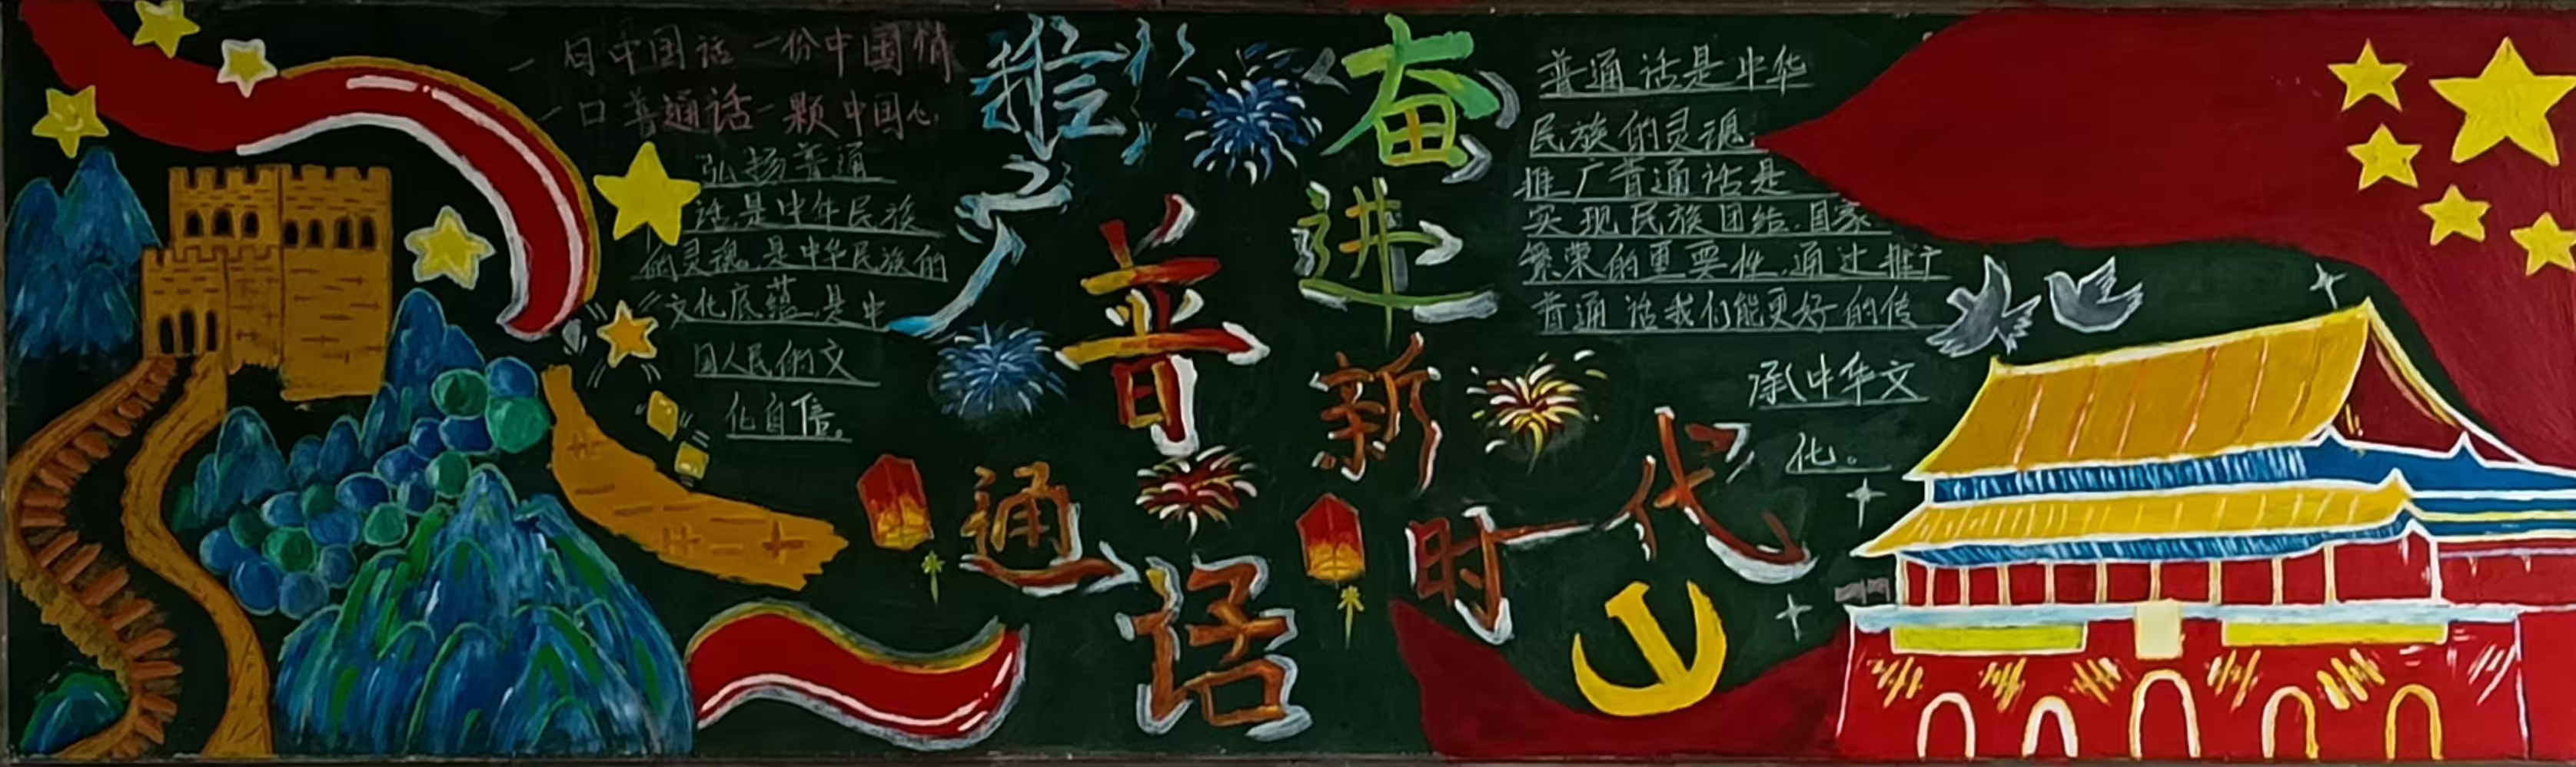 一日中国话一份中国情
一口普通话一颗中国心
弘扬普通
话是中华民族
的灵魂是中华民族的
文化底蕴是中
国人民的文
化自信。
推广普通话
奋进新时代
普通话是中华
民族的灵魂
推广普通话是
实现民族团结.国家
繁荣的重要性,通过推广
普通话我们能更好的传
承中华文
化。